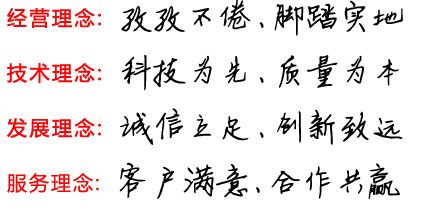 经营理念：孜孜不倦、脚踏实地
技术理念：科技为先、质量为本
发展理念：诚信立足、创新致远
服务理念：客户满意、合作共赢